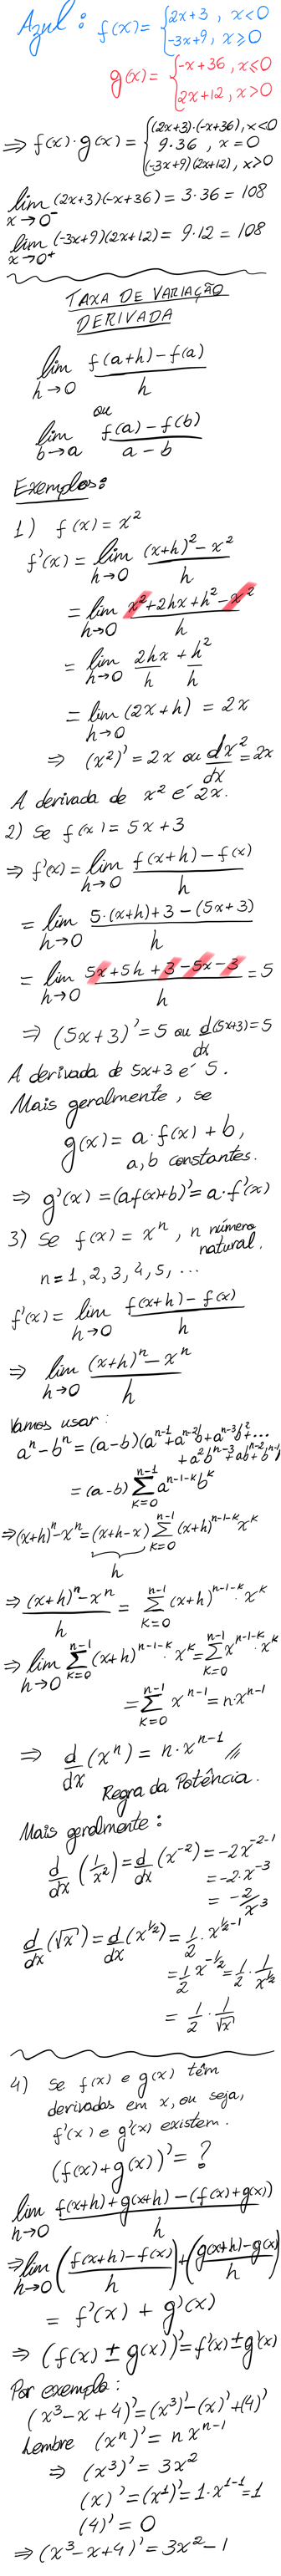 Azul: f(x) = { 2x+3 , x<0
-3x+9, x≥0
g(x) = { -x+36 , x≤0
2x+12 , x>0
⇒ f(x)·g(x) = { (2x+3)·(-x+36), x<0
9·36 , x=0
(-3x+9)(2x+12), x>0
lim_{x→0⁻} (2x+3)(-x+36) = 3·36 = 108
lim_{x→0⁺} (-3x+9)(2x+12) = 9·12 = 108
TAXA DE VARIAÇÃO
DERIVADA
lim_{h→0} (f(a+h)-f(a))/h
ou
lim_{b→a} (f(a)-f(b))/(a-b)
Exemplos:
1) f(x) = x²
f'(x) = lim_{h→0} ((x+h)² - x²)/h
= lim_{h→0} (x²+2hx+h²-x²)/h
= lim_{h→0} 2hx/h + h²/h
= lim_{h→0} (2x+h) = 2x
⇒ (x²)' = 2x ou dx²/dx = 2x
A derivada de x² é 2x.
2) Se f(x) = 5x+3
⇒ f'(x) = lim_{h→0} (f(x+h)-f(x))/h
= lim_{h→0} (5·(x+h)+3-(5x+3))/h
= lim_{h→0} (5x+5h+3-5x-3)/h = 5
⇒ (5x+3)' = 5 ou d/dx (5x+3) = 5
A derivada de 5x+3 é 5.
Mais geralmente, se
g(x) = a·f(x) + b,
a,b constantes.
⇒ g'(x) = (af(x)+b)' = a·f'(x)
3) Se f(x) = xⁿ, n número
natural.
n = 1, 2, 3, 4, 5, ...
f'(x) = lim_{h→0} (f(x+h)-f(x))/h
⇒ lim_{h→0} ((x+h)ⁿ - xⁿ)/h
Vamos usar:
aⁿ-bⁿ = (a-b)(a^{n-1}+a^{n-2}b+a^{n-3}b²+...
+a²b^{n-3}+ab^{n-2}+b^{n-1})
= (a-b) Σ_{k=0}^{n-1} a^{n-1-k} b^k
⇒ (x+h)ⁿ-xⁿ = (x+h-x) Σ_{k=0}^{n-1} (x+h)^{n-1-k} x^k
h
⇒ ((x+h)ⁿ-xⁿ)/h = Σ_{k=0}^{n-1} (x+h)^{n-1-k}·x^k
⇒ lim_{h→0} Σ_{k=0}^{n-1} (x+h)^{n-1-k}·x^k = Σ_{k=0}^{n-1} x^{n-1-k}·x^k
= Σ_{k=0}^{n-1} x^{n-1} = n·x^{n-1}
⇒ d/dx (xⁿ) = n·x^{n-1} //
Regra da Potência.
Mais geralmente:
d/dx (1/x²) = d/dx (x^{-2}) = -2x^{-2-1}
= -2·x^{-3}
= -2/x³
d/dx (√x) = d/dx (x^{1/2}) = 1/2·x^{1/2-1}
= 1/2 x^{-1/2} = 1/2·1/x^{1/2}
= 1/2·1/√x
4) Se f(x) e g(x) têm
derivadas em x, ou seja,
f'(x) e g'(x) existem.
(f(x)+g(x))' = ?
lim_{h→0} (f(x+h)+g(x+h)-(f(x)+g(x)))/h
⇒ lim_{h→0} ((f(x+h)-f(x))/h) + ((g(x+h)-g(x))/h)
= f'(x) + g'(x)
⇒ (f(x) ± g(x))' = f'(x) ± g'(x)
Por exemplo:
(x³-x+4)' = (x³)'-(x)'+(4)'
Lembre (xⁿ)' = nx^{n-1}
⇒ (x³)' = 3x²
(x)' = (x¹)' = 1·x^{1-1} = 1
(4)' = 0
⇒ (x³-x+4)' = 3x²-1